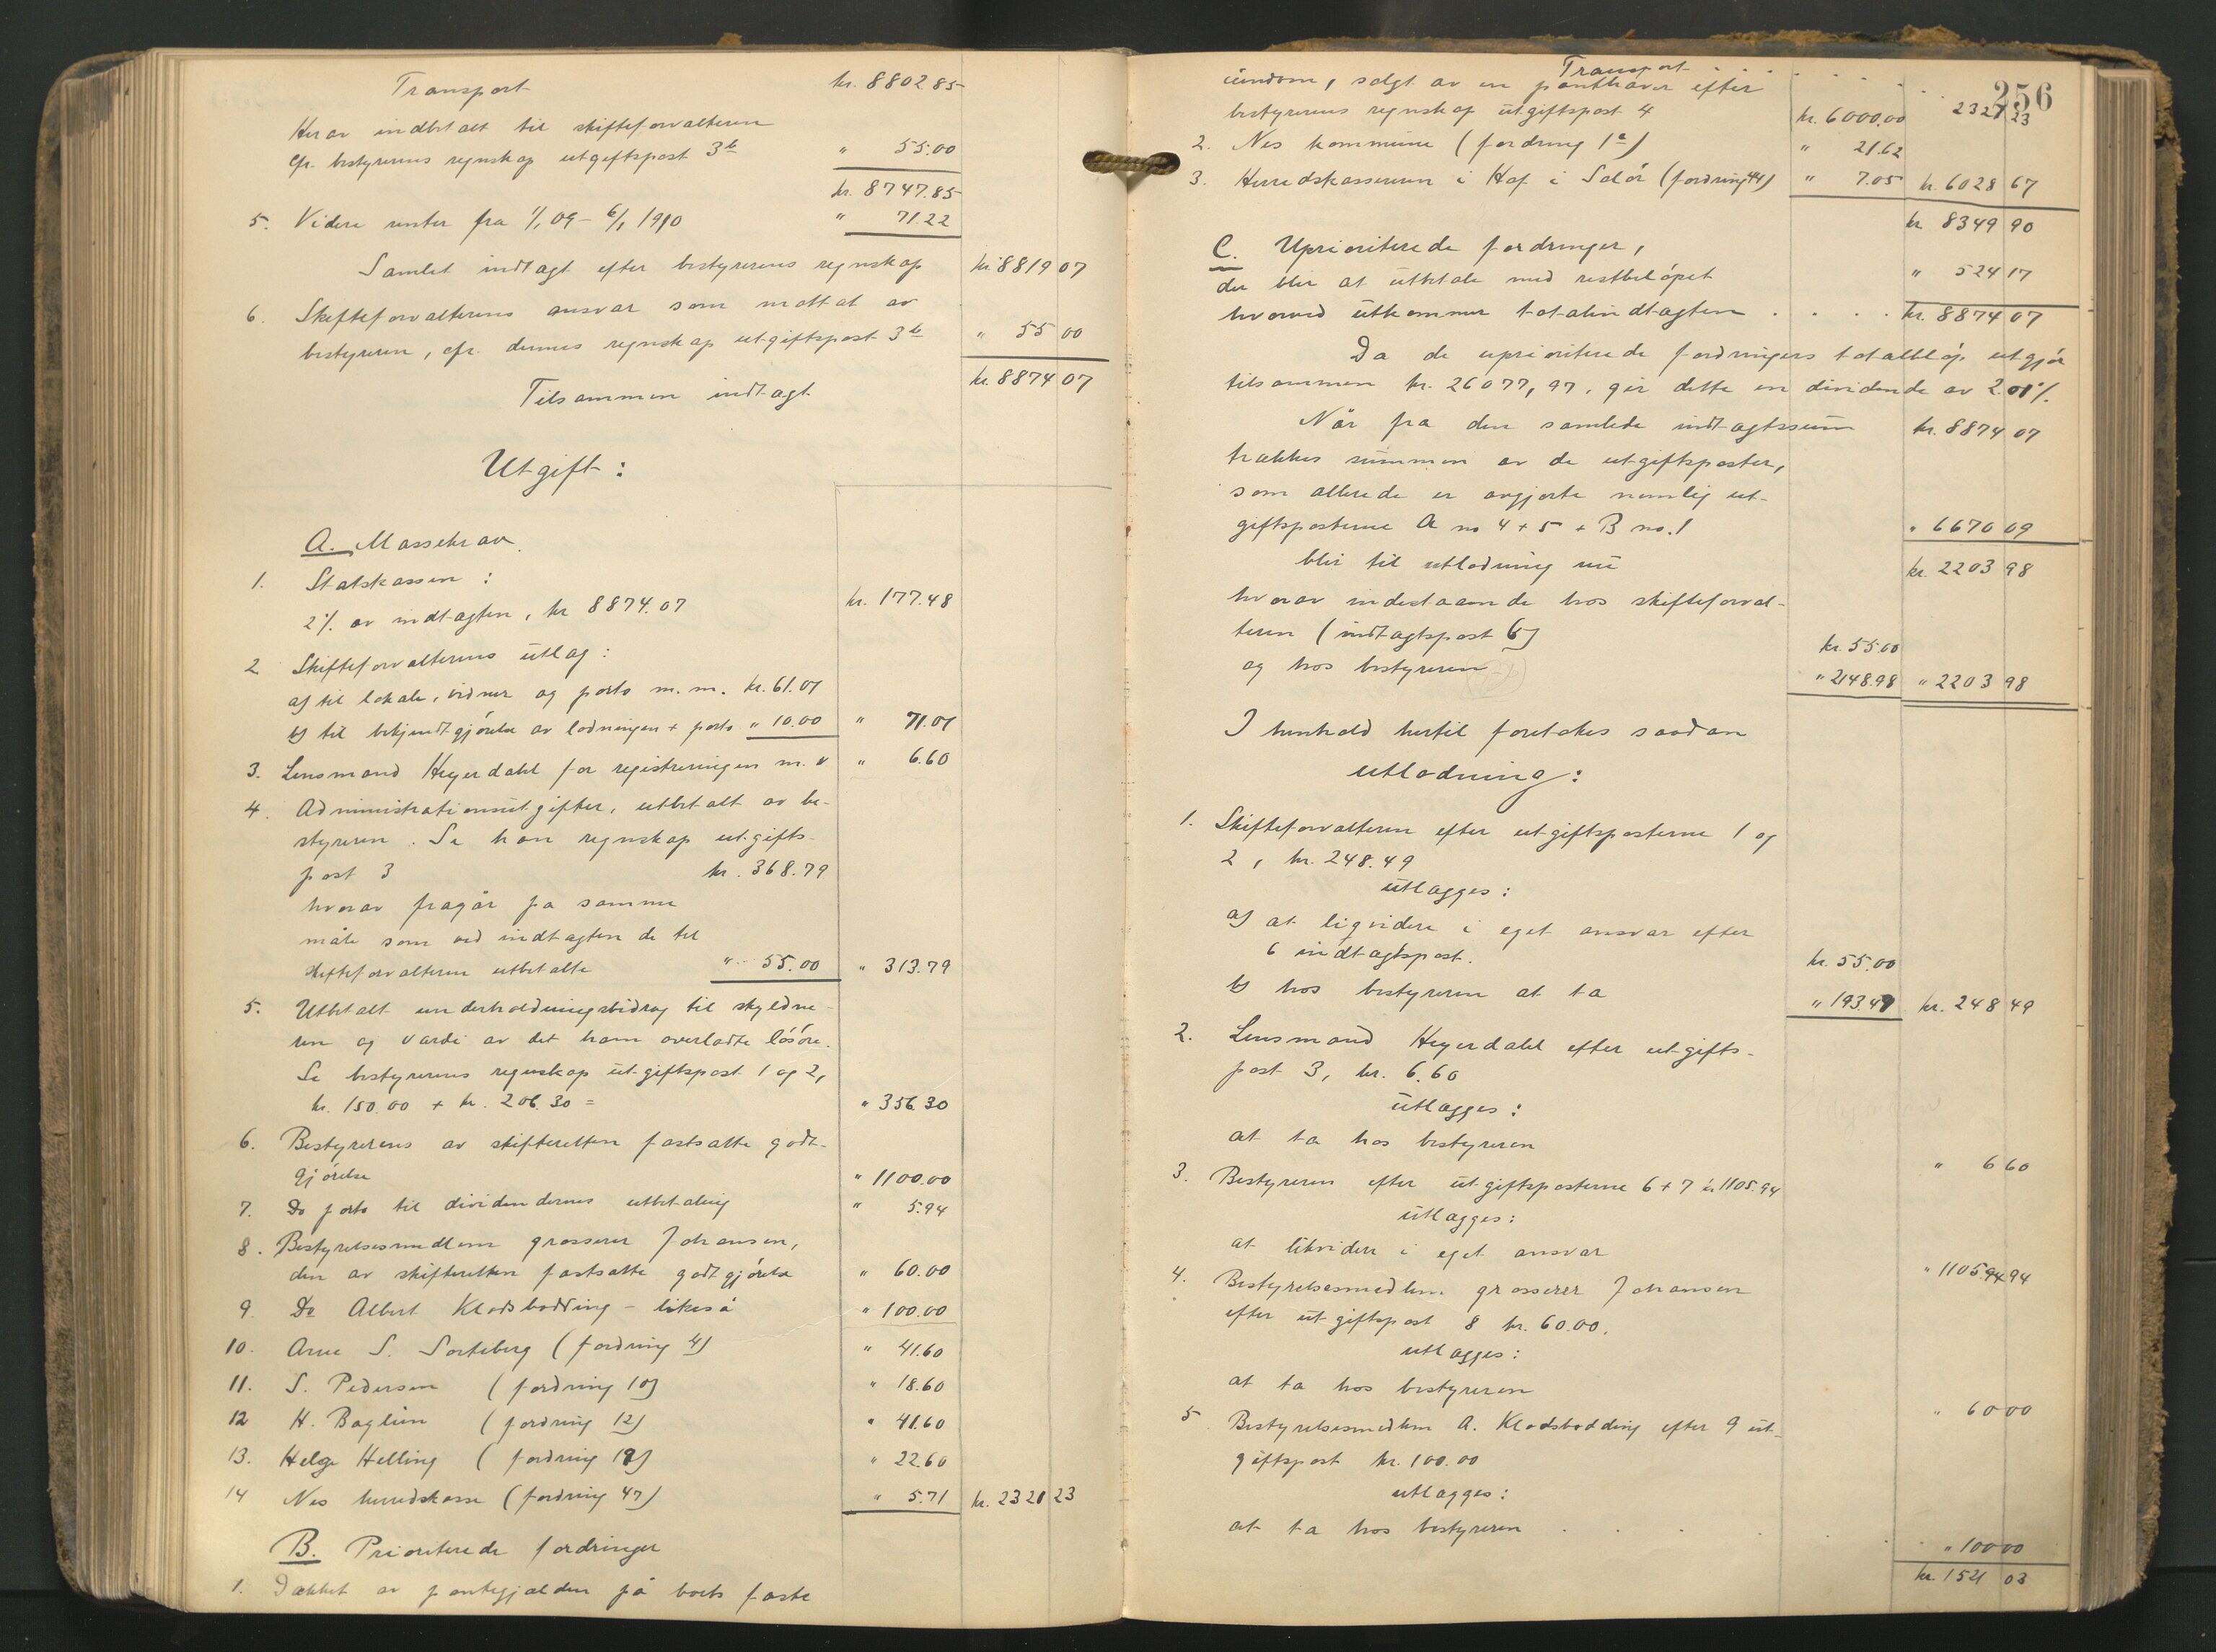 Transport kr. 8802 85
Herav indbetalt til skifteforvalteren
cfr. bestyrerens regnskap utgiftspost 3b " 55.00
kr. 8747.85
5. Videre renter fra 1/1 09 – 6/1 1910 " 71.22
Samlet indtægt efter bestyrerens regnskap kr. 8819 07
6. Skifteforvalterens ansvar som mottat av
bestyreren, cfr. dennes regnskap utgiftspost 3b " 55 00
Tilsammen indtægt kr. 8874 07
Utgift:
A. Massekrav.
1. Statskassen:
2% av indtægten, kr 8874.07 kr. 177.48
2 Skifteforvalterens utlæg:
a) til lokale, vidner og porto m. m. kr. 61.01
b) til bekjendtgjørelse av lodningen + porto " 10.00 " 71.01
3. Lensmand Heyerdahl for registreringen m. v " 6.60
4. Administrationsutgifter, utbetalt av be-
styreren. Se han regnskap utgifts-
post 3 kr. 368.79
hvorav fragår på samme
måte som ved indtægten de til
skifteforvalteren utbetalte " 55.00 " 313.79
5. Utbetalt underholdningsbidrag til skyldne-
ren og værdi av det ham overladte løsøre.
Se bestyrerens regnskap utgiftspost 1 og 2,
kr. 150.00 + kr. 206.30 = " 356.30
6. Bestyrerens av skifteretten fastsatte godt-
gjørelse " 1100.00
7. Do porto til dividendernes utbetaling " 5.94
8. Bestyrelsesmedlem grosserer Johansen,
den av skifteretten fastsatte godtgjørelse " 60.00
9. Do Albert Kladsbodding – likeså " 100.00
10. Arne S. Sorteberg (fordring 4) " 41.60
11. S. Pedersen (fordring 10) " 18.60
12 H. Baglien (fordring 12) " 41.60
13. Helge Helling (fordring 19) " 22.60
14 Nes herredskasse (fordring 47) " 5.71 kr. 2321 23
B. Prioriterede fordringer
1. Dækket av pantegjælden på boets faste
256
Transport
eiendom, solgt av en panthaver efter
bestyrerens regnskap utgiftspost 4 kr. 6000.00 2321 23
2. Nes kommune (fordring 1a) " 21.62
3. Herredskassereren i Hof i Solør (fordring 44) " 7.05 kr. 6028 67
kr 8349 90
C. Uprioriterede fordringer,
der blir at utbetale med restbeløpet " 524 17
hvorved utkommer totalindtægten . . . . kr. 8874 07
Da de uprioriterede fordringers totalbeløp utgjør
tilsammen kr. 26077,97, gir dette en dividende av 2.01%.
Når fra den samlede indtægtssum kr. 8874 07
trækkes summen av de utgiftsposter,
som allerede er avgjorte nemlig ut-
giftsposterne A no 4 + 5 + B no. 1 " 6670 09
blir til utlodning nu kr. 2203 98
hvorav indestaaende hos skifteforval-
teren (indtægtspost 6) kr. 55.00
og hos bestyreren " 2148.98 " 2203 98
I henhold hertil foretokes saadan
utlodning:
1. Skifteforvalteren efter utgiftsposterne 1 og
2, kr. 248.49
utlægges:
a) at ligvidere i eget ansvar efter
6 indtægtspost. kr. 55.00
b) hos bestyreren at ta " 193.49 kr. 248 49
2. Lensmand Heyerdahl efter utgifts-
post 3, kr. 6.60
utlægges:
at ta hos bestyreren " 6 60
3. Bestyreren efter utgiftsposterne 6 + 7 kr 1105.94
utlægges:
at likvidere i eget ansvar " 1105.94 94
4. Bestyrelsesmedlem grosserer Johansen
efter utgiftspost 8 kr. 60.00.
utlægges:
at ta hos bestyreren " 60 00
5 Bestyrelsesmedlem A. Kladsbodding efter 9 ut-
giftspost kr. 100.00
utlægges:
at ta hos bestyreren . . . . " 100 00
kr. 1521 03